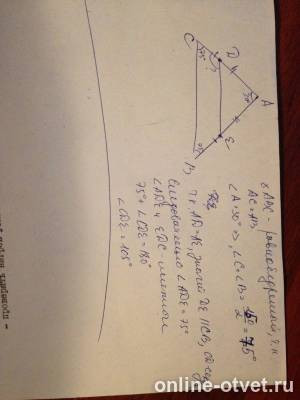 A
30°
D
E
C
75°
B
Δ ABC - равнобедренный, т.к
AC=AB
∠A=30° ⇒ ∠C=∠B= 150/2 = 75°
т.к. AD=AE, значит DE ∥ CB, CD сек
Следовательно ∠ADE = 75°
∠ADE и EDC - смежные
75° + ∠CDE = 180°
∠CDE = 105°
online-otvet.ru